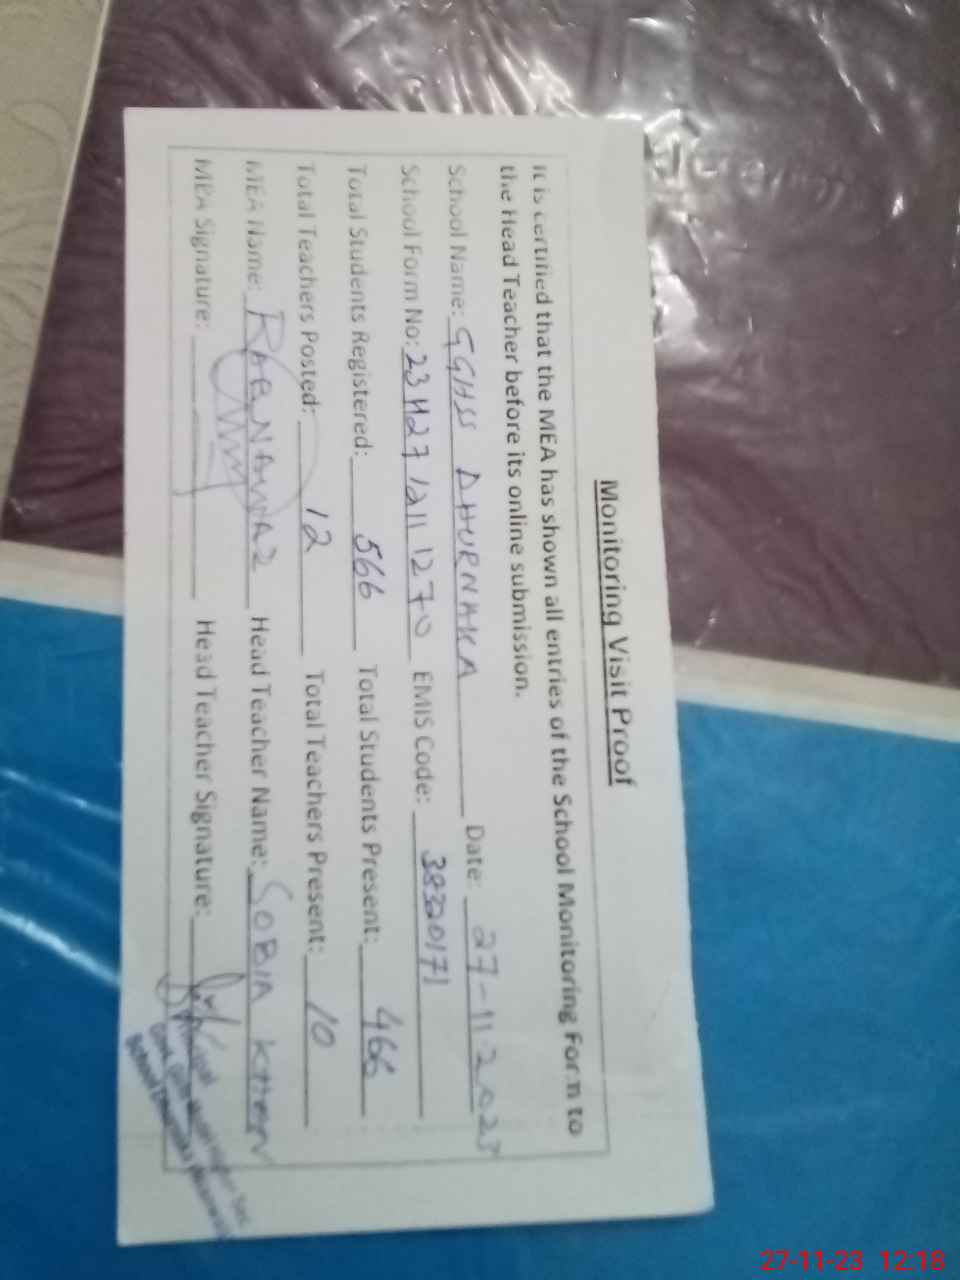 Monitoring Visit Proof
It is certified that the MEA has shown all entries of the School Monitoring Form to
the Head Teacher before its online submission.
School Name: GGHSS DHURNAKA Date: 27-11-2023
School Form No: EMIS Code: 38320171
Total Students Registered: 566 Total Students Present: 466
Total Teachers Posted: 12 Total Teachers Present: 10
MEA Name: Head Teacher Name: SOBIA
MEA Signature: Head Teacher Signature:
27-11-23 12:18